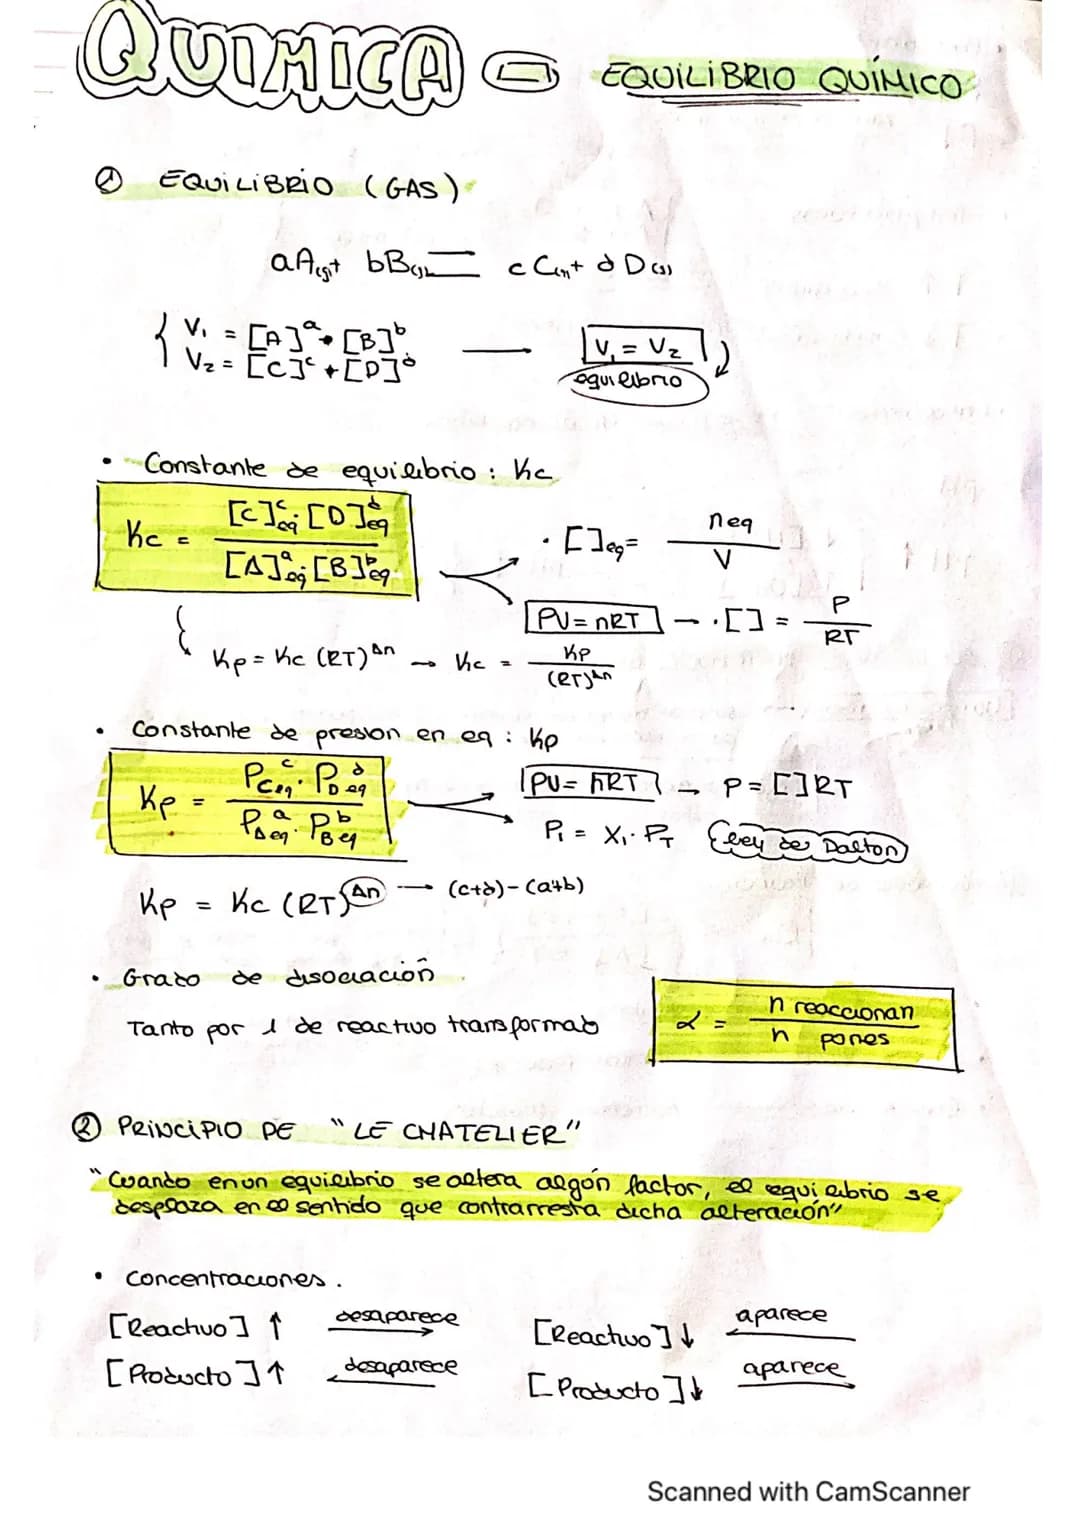 QUIMICA EQUILIBRIO QUÍMICO
① EQUILIBRIO (GAS)
aA(g)+ bB(g) ⇌ cC(g)+ dD(g)
V₁ = [A]ᵃ • [B]ᵇ
V₂ = [C]ᶜ + [D]ᵈ
V₁ = V₂
equilibrio
• Constante de equilibrio : Kc
Kc = [C]ᶜeq · [D]ᵈeq / [A]ᵃeq · [B]ᵇeq
· [ ]eq = neq / V
PV = nRT → · [ ] = P / RT
Kp = Kc (RT)^Δn → Kc = Kp / (RT)^Δn
• Constante de presion en eq : Kp
Kp = P_C^c eq · P_D^d eq / P_A^a eq · P_B^b eq
PV = nRT → P = [ ]RT
Pᵢ = Xᵢ · P_T (Ley de Dalton)
Kp = Kc (RT)^Δn → (c+d)-(a+b)
• Grado de disociación
Tanto por 1 de reactivo transformado
α = n reaccionan / n pones
② PRINCIPIO DE "LE CHATELIER"
"Cuando en un equilibrio se altera algón factor, el equilibrio se
desplaza en el sentido que contrarresta dicha alteración"
• Concentraciones.
[Reactivo] ↑ desaparece →
[Producto] ↑ desaparece ←
[Reactivo] ↓ aparece ←
[Producto] ↓ aparece →
Scanned with CamScanner